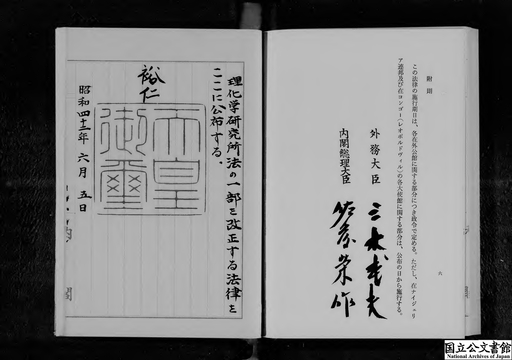 附則
この法律の施行期日は、各在外公館に関する部分につき政令で定める。ただし、在ナイジェリ
ア連邦及び在コンゴー(レオポルドヴィル)の各大使館に関する部分は、公布の日から施行する。
外務大臣 三木武夫
内閣総理大臣 佐藤栄作
六
理化学研究所法の一部を改正する法律を
ここに公布する。
裕仁
天皇
御璽
昭和四十三年六月五日
国立公文書館
National Archives of Japan